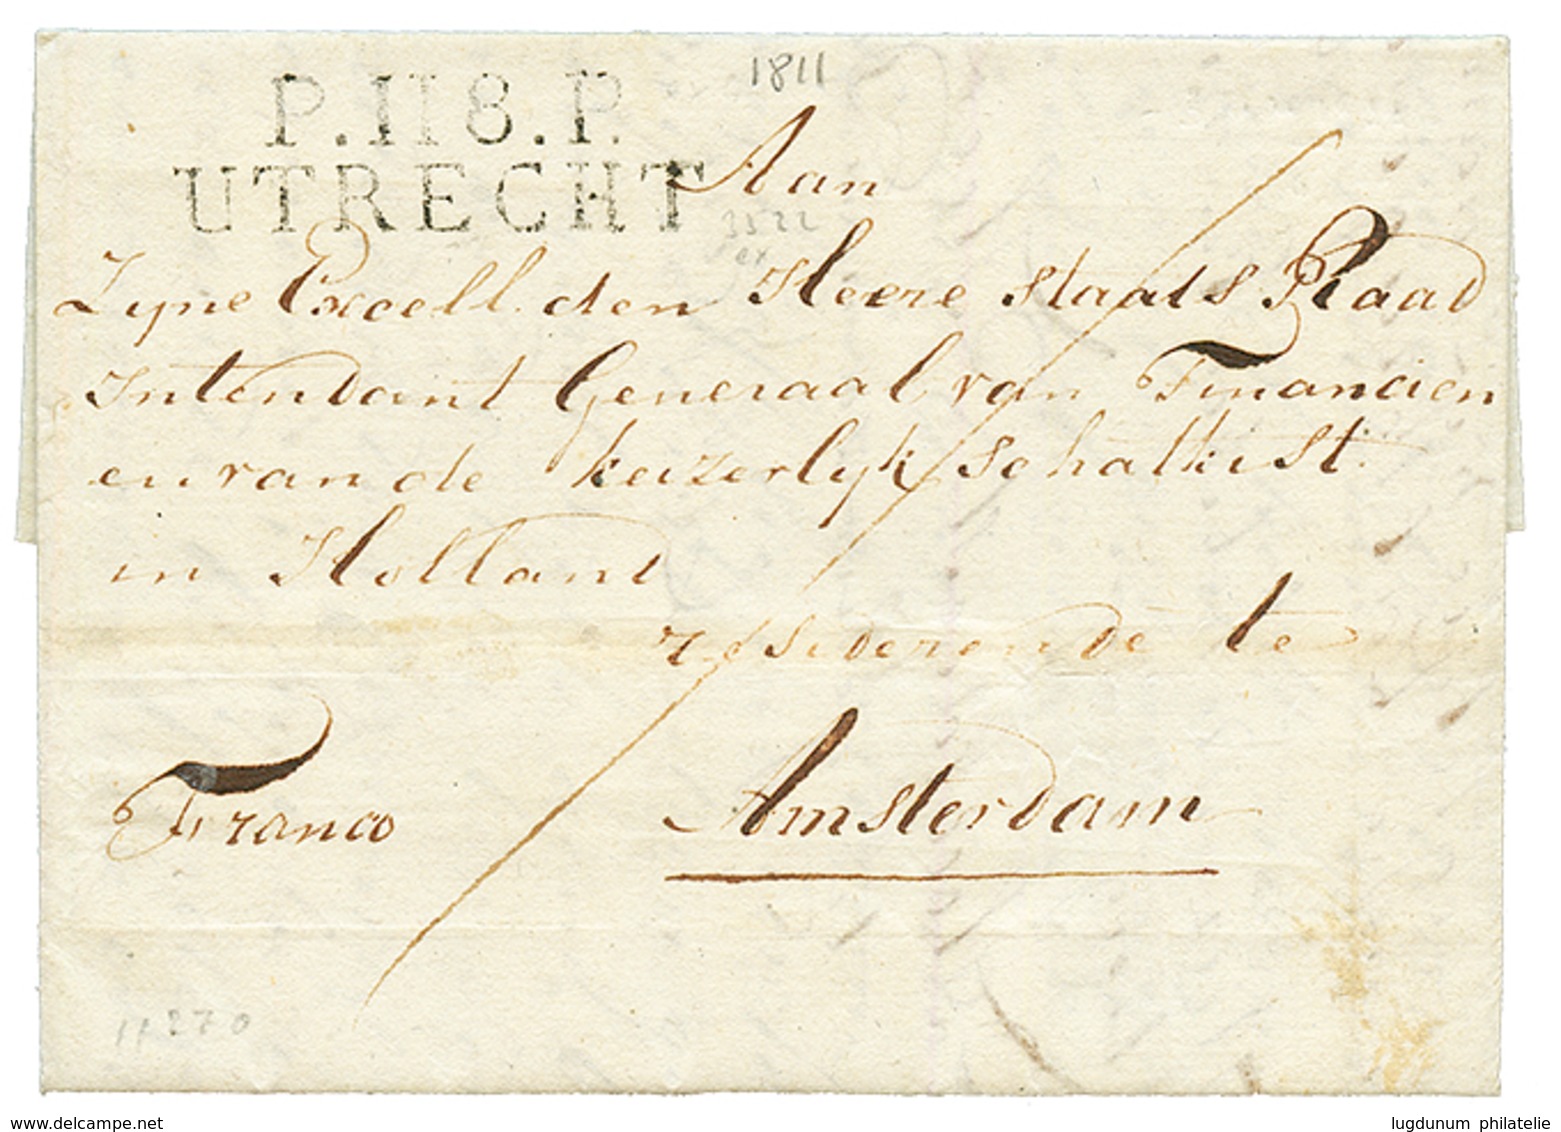 1811
P.118.P.
UTRECHT
Aan
3522
ex
Zyne Excell. den Heere Staats Raad
Intendant Generaal van Financien
en van de keizerlyk Schatkist
in Holland
resiederende te
Franco
Amsterdam
11270
lugdunum philatelie